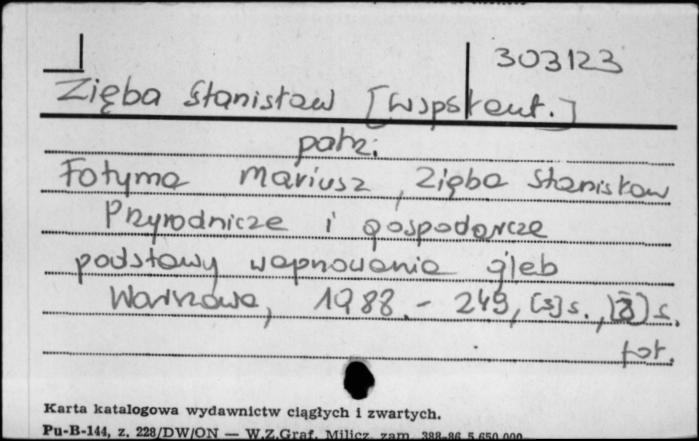 303123
Zięba Stanisław [wspłaut.]
patrz.
Fotyma Mariusz, Zięba Stanisław
Przyrodnicze i gospodarcze
podstawy wapnowania gleb
Warszawa, 1988. - 249, [3] s., [2] s.
fot.
Karta katalogowa wydawnictw ciągłych i zwartych.
Pu-B-144, z. 228/DW/ON — W.Z.Graf. Milicz, zam. 388-86 5.650.000